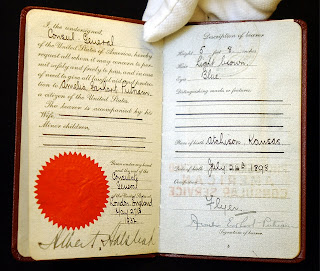 I, the undersigned,
Consul General
of the United States of America, hereby
request all whom it may concern to per-
mit safely and freely to pass, and in case
of need to give all lawful aid and protec-
tion to Amelia Earhart Putnam
a citizen of the United States.
The bearer is accompanied by his
Wife,
Minor children,
Given under my hand
and the seal of the
Consulate
General
of the United States at
London England
May 27th
1932
Albert Halstead
Description of bearer
Height 5 feet 8 inches
Hair Light brown
Eyes Blue
Distinguishing marks or features:
Place of birth Atchison Kansas
Date of birth July 24th 1898
Flyer
Amelia Earhart Putnam
Signature of bearer